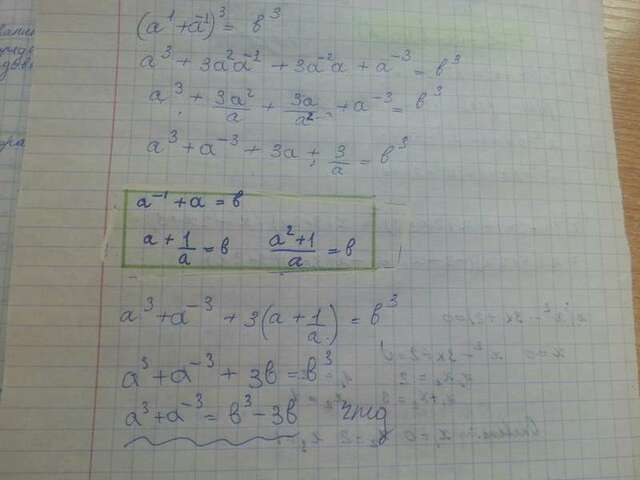 (a¹ + a⁻¹)³ = b³
a³ + 3a²a⁻¹ + 3a⁻²a + a⁻³ = b³
a³ + 3a²/a + 3a/a² + a⁻³ = b³
a³ + a⁻³ + 3a + 3/a = b³
a⁻¹ + a = b
a + 1/a = b (a² + 1)/a = b
a³ + a⁻³ + 3(a + 1/a) = b³
a³ + a⁻³ + 3b = b³
a³ + a⁻³ = b³ - 3b чтд